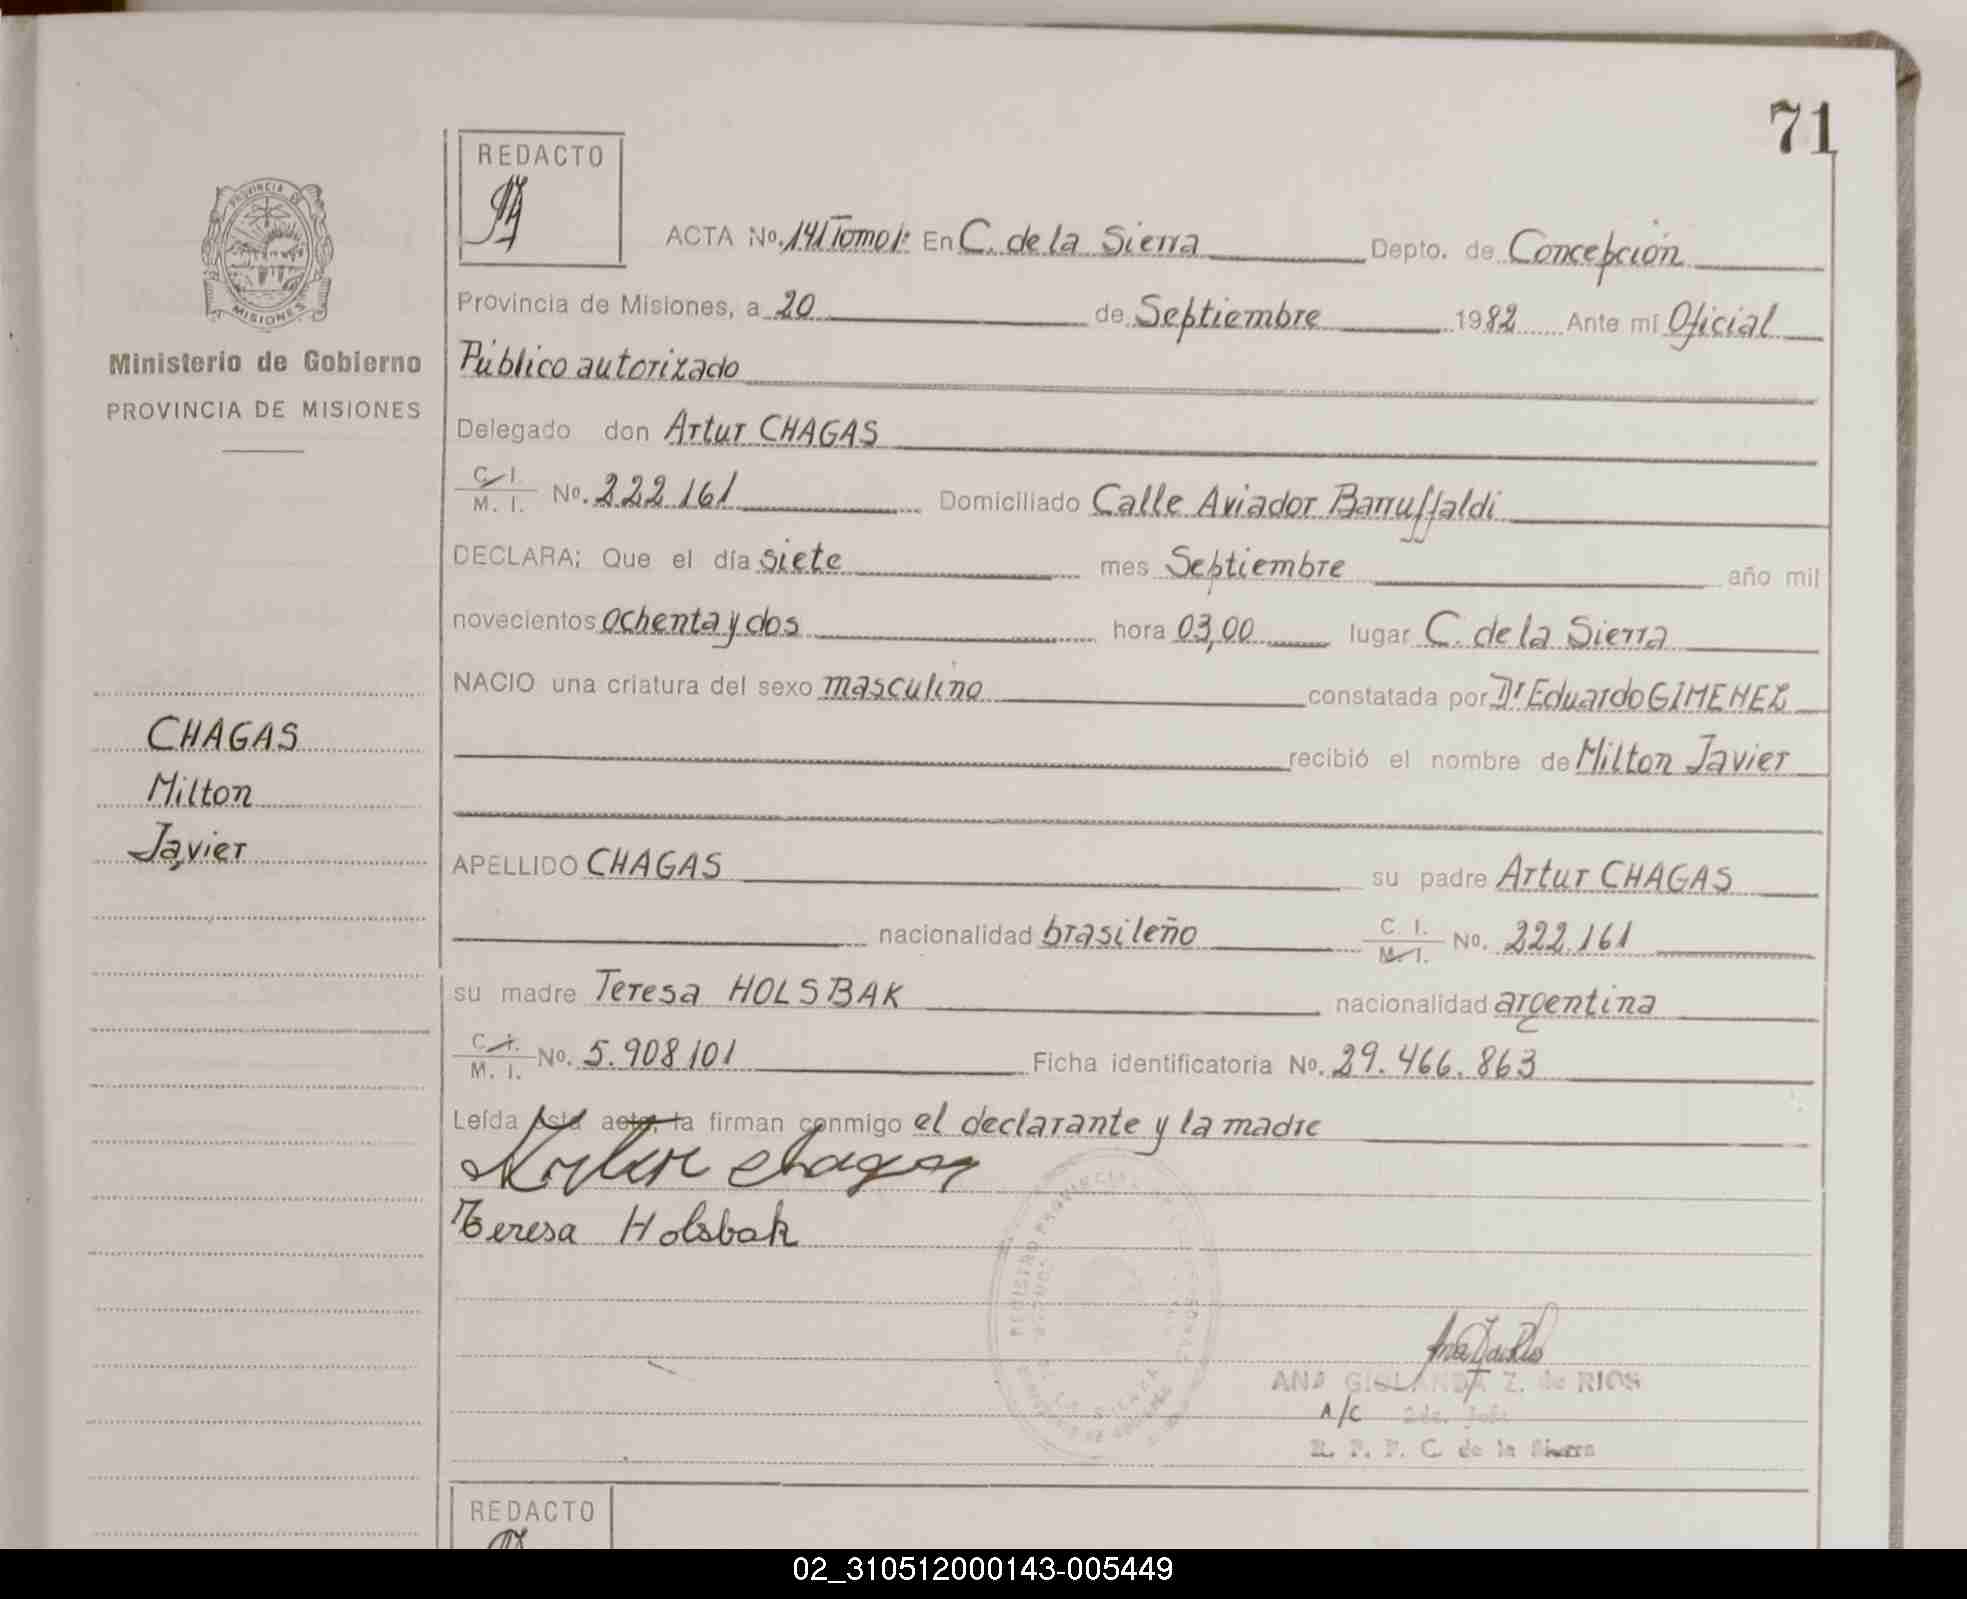 71
REDACTO
PROVINCIA DE
MISIONES
Ministerio de Gobierno
PROVINCIA DE MISIONES
CHAGAS
Milton
Javier
ACTA No. 141 Tomo 1º En C. de la Sierra Depto. de Concepción
Provincia de Misiones, a 20 de Septiembre 1982 Ante mí Oficial
Público autorizado
Delegado don Artur CHAGAS
C. I.
M. I. No. 222.161 Domiciliado Calle Aviador Barruffaldi
DECLARA; Que el día siete mes Septiembre año mil
novecientos ochenta y dos hora 03,00 lugar C. de la Sierra
NACIO una criatura del sexo masculino constatada por Dr Eduardo GIMENEZ
recibió el nombre de Milton Javier
APELLIDO CHAGAS su padre Artur CHAGAS
nacionalidad brasileño C. I.
M. I. No. 222.161
su madre Teresa HOLSBAK nacionalidad argentina
C. I.
M. I. No. 5.908 101 Ficha identificatoria No. 29.466.863
Leída esta acta, la firman conmigo el declarante y la madre
Artur Chagas
Teresa Holsbak
REGISTRO PROVINCIAL
ANA Z. de RIOS
A/C 2da. Jefe
R. P. P. C. de la Sierra
REDACTO
02_310512000143-005449